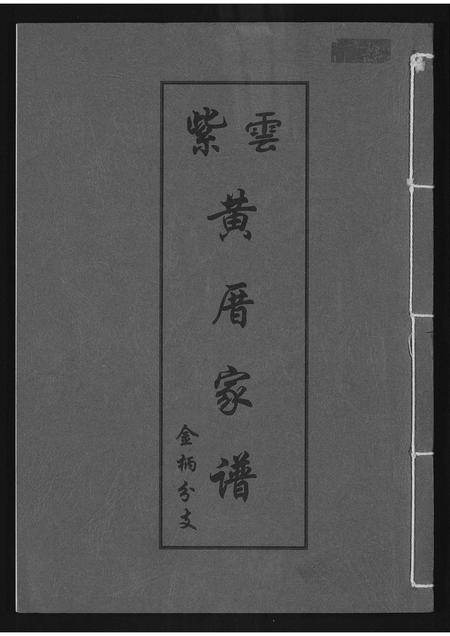 紫雲
黄厝家谱
金柄分支